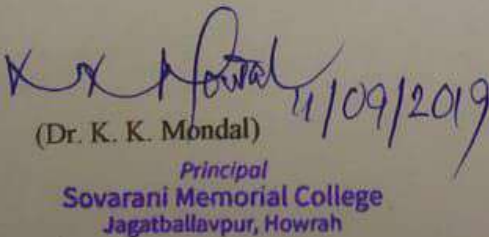 K K Mondal 11/09/2019
(Dr. K. K. Mondal)
Principal
Sovarani Memorial College
Jagatballavpur, Howrah